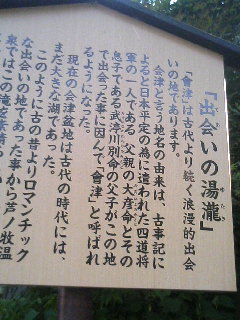 「出会いの湯瀧」
ゆたき
「會津」は古代より続く浪漫的出会
いの地であります。
会津と言う地名の由来は、古事記に
よると日本平定の為に遣わされた四道将
軍の一人である　父親の大彦命とその
息子である武渟川別命の父子がこの地
で出会った事に因んで「會津」と呼ばれ
るようになった。
現在の会津盆地は古代の時代には、
まだ大きな湖であった。
このように古の昔よりロマンチック
な出会いの地であった事から芦ノ牧温
泉ではこの滝を